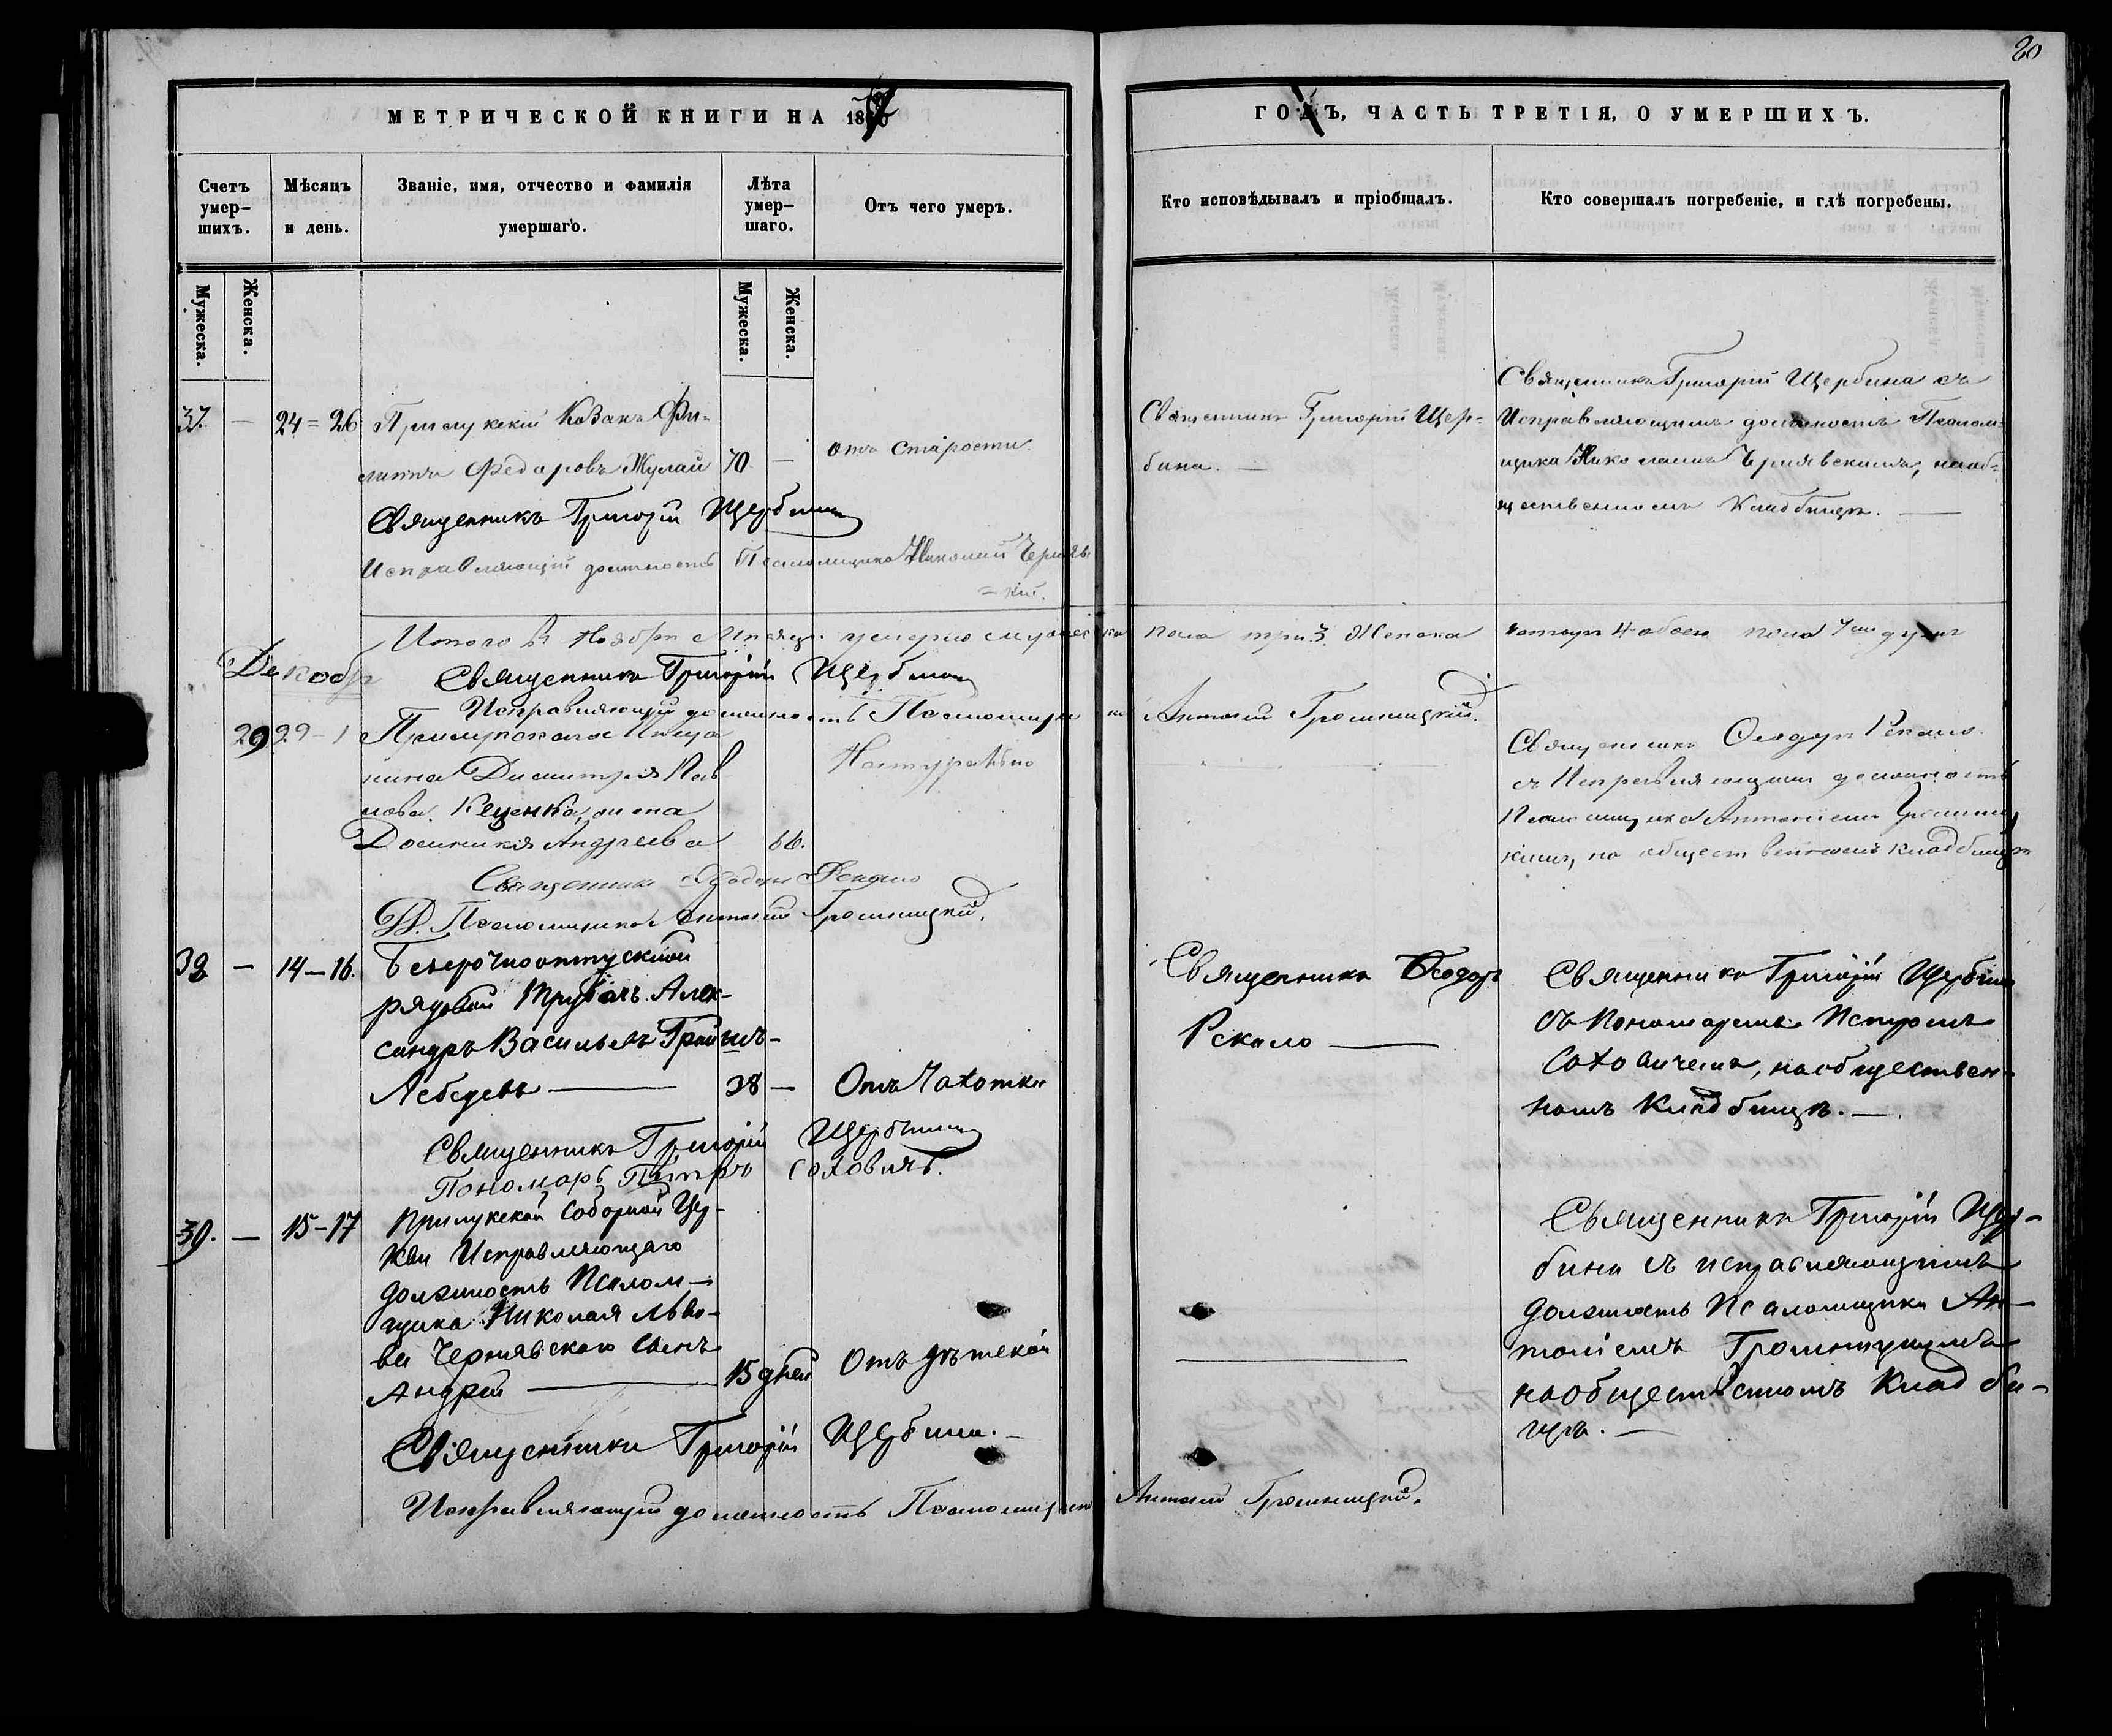 20
МЕТРИЧЕСКОЙ КНИГИ НА 18
ГОДЪ, ЧАСТЬ ТРЕТІЯ, О УМЕРШИХЪ.
Счетъ умер-
шихъ.
Мѣсяцъ
и день.
Званіе, имя, отчество и фамилія
умершаго.
Лѣта
умер-
шаго.
Отъ чего умеръ.
Кто исповѣдывалъ и пріобщалъ.
Кто совершалъ погребеніе, и гдѣ погребены.
Мужеска.
Женска.
Мужеска.
Женска.
37. — 24=26
Прилукскій Козакъ Фи-
липпъ Федоровъ Жулай
70 —
отъ старости.
Священникъ Григорій Щер-
бина. —
Священникъ Григорій Щербина съ
Исправляющимъ должность Псалом-
щика Николаемъ Чернявскимъ, на об-
щественномъ Кладбищѣ. —
Священникъ Григорій Щербина
Исправляющій должность Псаломщика Николай Чернявс
=кій.
Итого въ Ноябрѣ Мѣсяцѣ умерло мужеска пола три 3. Женска четыре 4 обоего пола 7 душъ
Декабр
Священникъ Григорій Щербина
Исправляющій должность Псаломщика Антоній Громиницкій.
29 29-1
Прилукскаго Меща
нина Димитрія Пав
лова Кеценка, жена
Домникія Андреева
66.
Натурально
Священникъ Феодоръ Рекало
съ Исправляющимъ должность
Псаломщика Антоніемъ Громниц
кимъ, на общественномъ кладбищѣ
Священникъ Феодоръ Рекало
И. Д. Псаломщика Антоній Громницкій.
38 — 14—16.
Безсрочноотпускной
рядовой Трубачъ Алек-
сандръ Васильевъ
Лебедевъ —
38 —
Отъ Чахотки
Священникъ Феодоръ
Рекало —
Священникъ Григорій Щербина
съ Пономаремъ Петромъ
Соховичемъ, на обществен-
номъ Кладбищѣ. —
Священникъ Григорій Щербина
Пономарь Петръ Соховичъ.
39. — 15-17
Прилукской Соборной Цер-
кви Исправляющаго
должность Псалом-
щика Николая Льво-
ва Чернявскаго сынъ
Андрей —
15 дней
Отъ дѣтской
Священникъ Григорій Щер-
бина съ исправляющимъ
должность Псаломщика Ан-
тоніемъ Громницкимъ
на общественномъ Кладби-
щѣ. —
Священникъ Григорій Щербина. —
Исправляющій должность Псаломщика Антоній Громницкій.